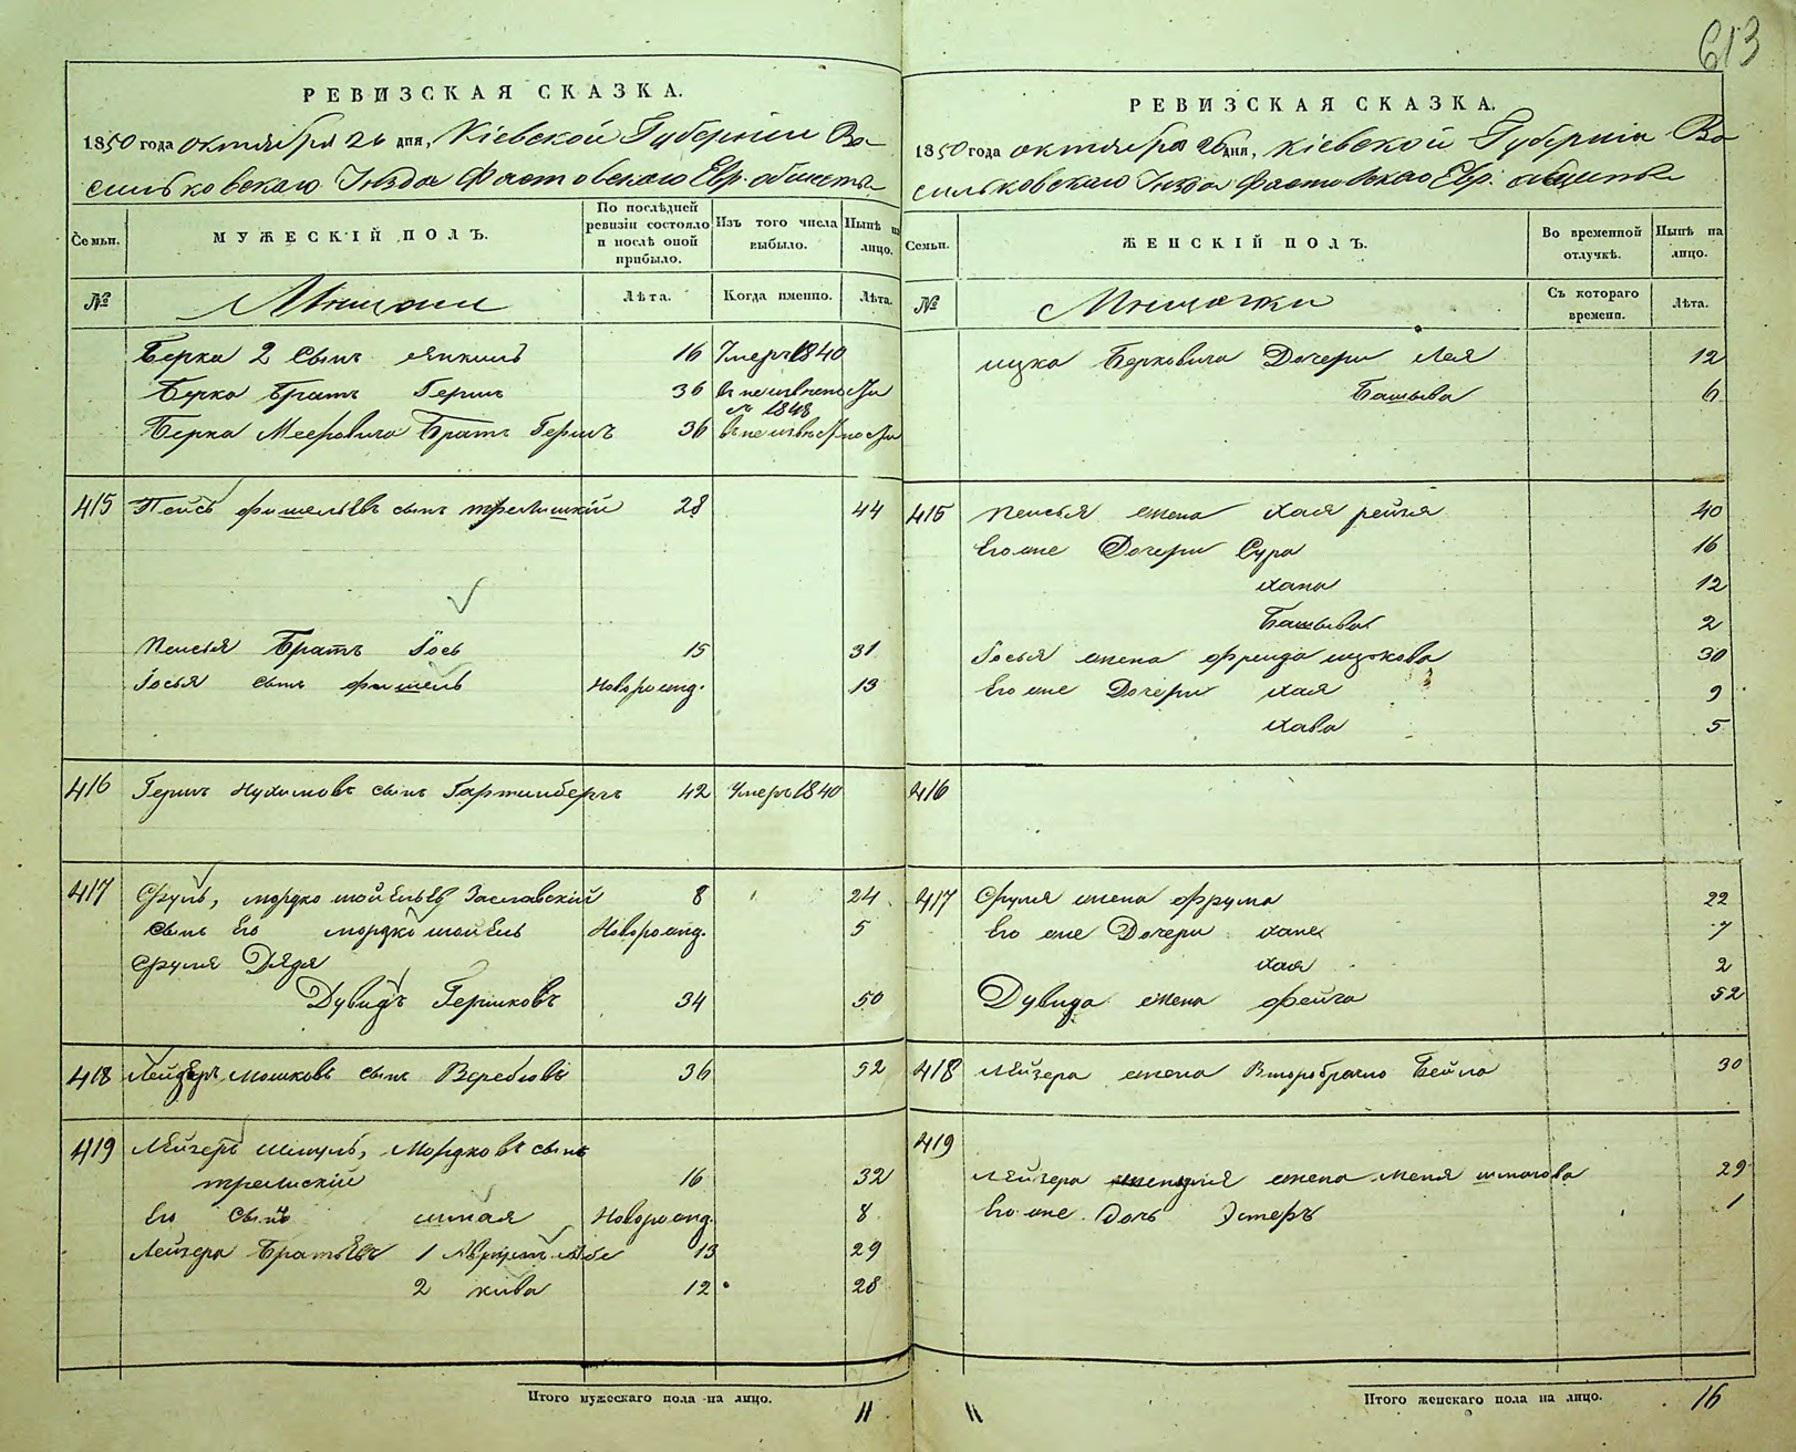 613
РЕВИЗСКАЯ СКАЗКА.
1850 года октября 26 дня, Кіевской Губерніи Ва-
сильковскаго Уѣзда Фастовскаго Евр. общества
Семьи.
МУЖЕСКІЙ ПОЛЪ.
По послѣдней ревизіи состояло и послѣ оной прибыло.
Изъ того числа выбыло.
Нынѣ на лицо.
№
Мѣщане
Лѣта.
Когда именно.
Лѣта.
Берка 2 сынъ Янкель 16 Умеръ 1840
Берка братъ Гершъ 36 въ неизвѣстности
съ 1848
Берка Мееровича братъ Гершъ 36 въ неизвѣстности
415 Пейсъ Фишелевъ сынъ 28 44
Пейсъя братъ Іось 15 31
Іосья сынъ Фишель Новорожд. 13
416 Гершъ Нухимовъ сынъ Гартинбергъ 42 Умеръ 1840
417 Сруль, Мордко Шойлевъ Заславскій 8 24
сынъ Его Мордко Шойль Новорожд. 5
Сруля Дядя
Дувидъ Гершковъ 34 50
418 Лейзеръ Мошковъ сынъ 36 52
419 Лейзеръ Шмуль, Мордковъ сынъ
16 32
Его сынъ Новорожд. 8
Лейзера братьевъ 1 13 29
2 Кива 12 28
Итого мужескаго пола на лицо. 11
РЕВИЗСКАЯ СКАЗКА.
1850 года октября 26 дня, Кіевской Губерніи Ва
сильковскаго Уѣзда Фастовскаго Евр. общества
Семьи.
ЖЕНСКІЙ ПОЛЪ.
Во временной отлучкѣ.
Нынѣ на лицо.
№
Мѣщанки
Съ котораго времени.
Лѣта.
Ицка Берковича Дочери Лея 12
Башыва 6
415 Пейсья жена Хая Рейзя 40
Его же Дочери Сура 16
Хана 12
Башыва 2
Іосья жена Фрейда Ицкова 30
Его же Дочери Хая 9
Хава 5
416
417 Сруля жена Фрума 22
Его же Дочери Хане 7
Хая 2
Дувида жена Фейга 52
418 Лейзера жена Второбрачно Бейла 30
419
Лейзера жена Меня 29
Его же Дочь Эстеръ 1
Итого женскаго пола на лицо. 16
11